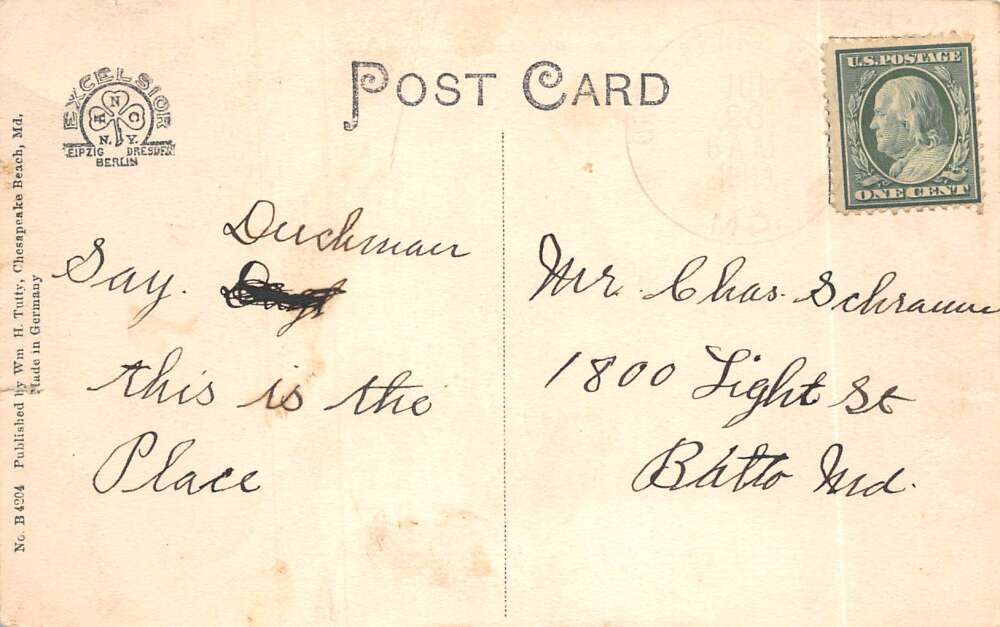 POST CARD
EXCELSIOR
H N C
N.Y.
LEIPZIG DRESDEN
BERLIN
U.S. POSTAGE
ONE CENT
No. B 4204 Published by Wm H. Tutty, Chesapeake Beach, Md.
Made in Germany
Duchman
Say.
this is the
Place
Mr. Chas. Schramm
1800 Light St
Balto Md.